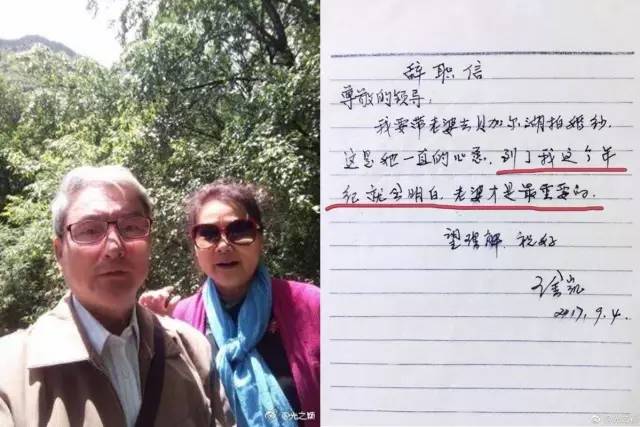 辞职信
尊敬的领导:
我要带老婆去贝加尔湖拍婚纱.
这是她一直的心愿,到了我这个年
纪就会明白,老婆才是最重要的.
望理解,祝好
2017.9.4.